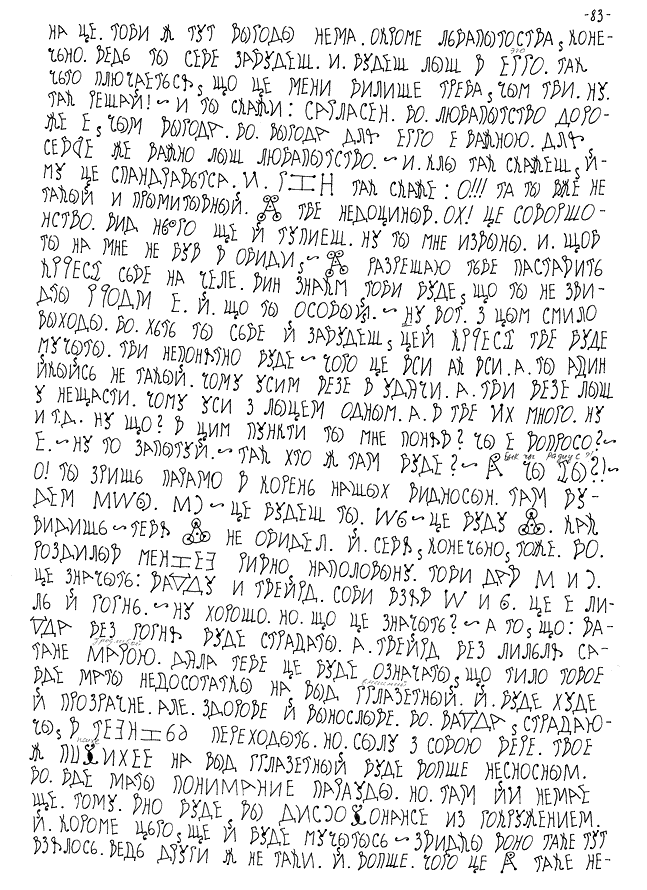 -83-
НА ЦЕ. ТОБИ Ж ТУТ ВЫГОДЫ НЕМА. ОКРОМЕ ЛЬБАПЫТОСТВА, КОНЕ-
ЧЬНО. ВЕДЬ ТЫ СЕБЕ ЗАБУДЕШ. И. БУДЕШ ЛЫШ В ЕГГО. ТАК
ЧЬТО ПЛЮЧАЕТЬСЯ, ЩО ЦЕ МЕНИ БИЛИШЕ ТРЕБА, ЧЫМ ТБИ. НУ.
ТАК РЕШАЙ! ~ И ТЫ СКАЖИ: САГЛАСЕН. БО. ЛЮБАПЫТСТВО ДОРО-
ЖЕ Е, ЧЫМ ВЫГОДА. БО. ВЫГОДА ДЛЯ ЕГГО Е ВАЖНОЮ. ДЛЯ
СЕРДЦЕ ЖЕ ВАЖНО ЛЫШ ЛЮБАПЫТСТВО. ~ И. КЛЫ ТАК СКАЖЕШ, Й-
МУ ЦЕ СПАНДРАВЬТСА. И. ТАК СКАЖЕ: О!!! ТА ТЫ ВЖЕ НЕ
ТАКЫЙ И ПРЫМИТОВНЫЙ. ТБЕ НЕДОЦИНЫВ. ОХ! ЦЕ СОВОРШО-
НСТВО. ВИД НЬОГО ЩЕ Й ТУПИЕШ. НУ ТЫ МНЕ ИЗВЫНЫ. И. ЩОБ
ТЫ НА МНЕ НЕ БУВ В ОБИДИ, ~ РАЗРЕШАЮ ТЬБЕ ПАСТАВИТЬ
СЬБЕ НА ЧЕЛЕ. ВИН ЗНАКМ ТОБИ БУДЕ, ЩО ТЫ НЕ ЗВИ-
Е. Й. ЩО ТЫ ОСОБЫЙ. ~ НУ ВОТ. З ЦЫМ СМИЛО
ВЫХОДЫ. БО. ХЬТЬ ТЫ СЬБЕ Й ЗАБУДЕШ, ЦЕЙ ТБЕ БУДЕ
МУЧЫТЫ. ТБИ НЕПОНЯТНО БУДЕ ~ ЧОГО ЦЕ ВСИ АК ВСИ. А. ТЫ АДИН
ЙКЫЙСЬ НЕ ТАКЫЙ. ЧОМУ УСИМ ВЕЗЕ В УДАЧИ. А. ТБИ ВЕЗЕ ЛЫШ
У НЕЩАСТИ. ЧОМУ УСИ З ЛЫЦЕМ ОДНЫМ. А. В ТБЕ ИХ МНОГО. НУ
И Т.Д. НУ ЩО? В ЦИМ ПУНКТИ ТЫ МНЕ ПОНЯВ? ЧЫ Е ВОПРОСО? ~
Е. ~ НУ ТО ЗАПЫТУЙ. ~ ТАК ХТО Ж ТАМ БУДЕ? ~ ЧЫ ?! ~
О! ТЫ ЗРИШЬ ПАРАМО В КОРЕНЬ НАШЫХ ВИДНОСЫН. ТАМ БУ-
ДЕМ ЦЕ БУДЕШ ТЫ. ~ ЦЕ БУДУ КАК
ВИДИШЬ ~ ТЕБЯ НЕ ОБИДЕЛ. Й. СЕБЯ, КОНЕЧЬНО, ТОЖЕ. БО.
РОЗДИЛЫВ РИВНО, НАПОЛОВЫНУ. ТОБИ ДАВ М И
ЦЕ ЗНАЧЫТЬ: И СОБИ ВЗЯВ W И ЦЕ Е ЛИ-
ЛЬ Й ГОГНЬ. ~ НУ ХОРОШО. НО. ЩО ЦЕ ЗНАЧЫТЬ? ~ А ТО, ЩО: ВА-
БЕЗ ГОГНЯ БУДЕ СТРАДАТЫ. А. БЕЗ ЛИЛЬЛЯ СА-
ТАНЕ МАРОЮ. ДЛЯ ТЕБЕ ЦЕ БУДЕ ОЗНАЧАТЫ, ЩО ТИЛО ТОВОЕ
БДЕ МАТЫ НЕДОСОТАТКЫ НА ВЫД ГГЛАЗЕТНЫЙ. Й. БУДЕ ХУДЕ
Й ПРОЗРАЧНЕ. АЛЕ. ЗДОРОВЕ Й ВЫНОСЛЫВЕ. БО. СТРАДАЮ-
ЧЫ, В ПЕРЕХОДЫТЬ. НО. СЫЛУ З СОБОЮ БЕРЕ. ТВОЕ
Ж ПСИХИХЕЕ НА ВЫД ГГЛАЗЕТНЫЙ БУДЕ ВОПШЕ НЕСНОСНЫМ.
БО. БДЕ МАТЫ ПОНИМАНИЕ ПАРАУДЫ. НО. ТАМ ЙИ НЕМАЕ
ЩЕ. ТОМУ. ВНО БУДЕ, БЫ ИЗ ГОКРУЖЕНИЕМ.
Й. КОРОМЕ ЦЬГО, ЩЕ Й БУДЕ МУЧЫТЫСЬ ~ ЗВИДКЫ ВОНО ТАКЕ ТУТ
ВЗЯЛОСЬ. ВЕДЬ ДРУГИ Ж НЕ ТАКИ. Й. ВОПШЕ. ЧОГО ЦЕ ТАКЕ НЕ-